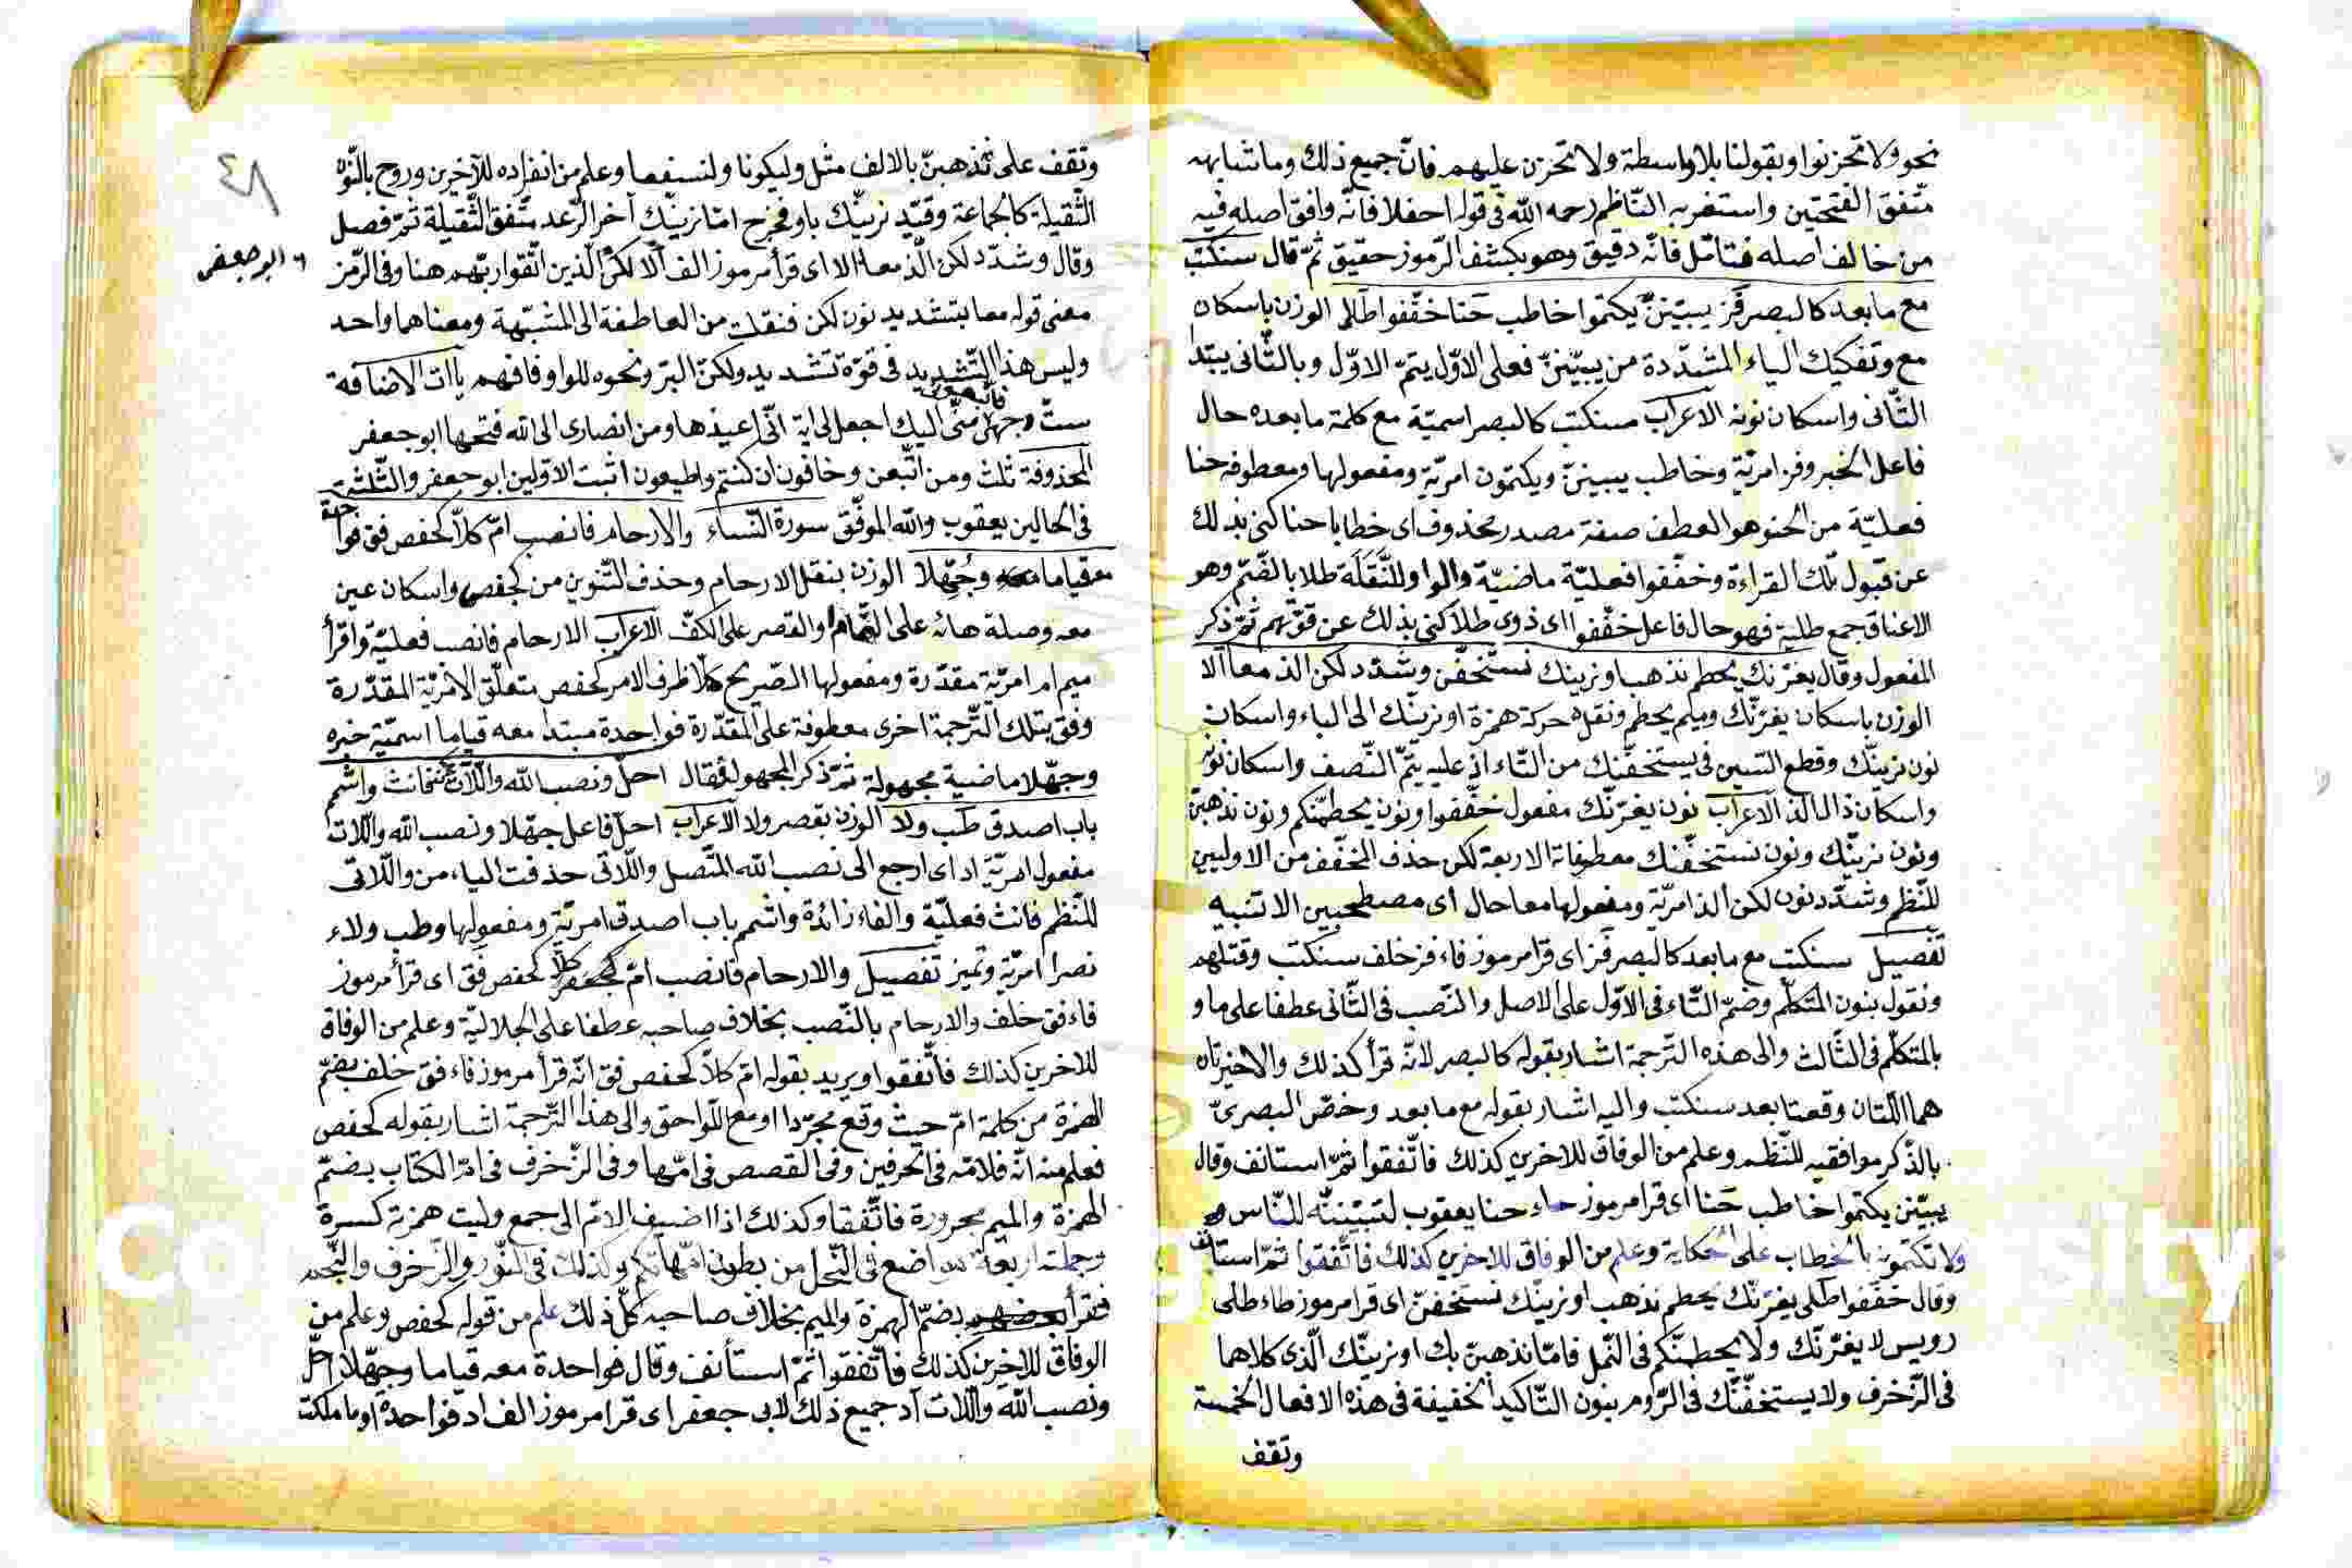 نحو ولا تحزنوا وبقولنا بلا واسطة ولا تحزن عليهم فانّ جميع ذلك وما شابهه
متّفق الفتحتين واستغربه النّاظم رحمه الله في قوله احفلا فانّه وافق اصله فيه
من خالف اصله فتامّل فانّه دقيق وهو بكشف الرّموز حقيق ثمّ قال سنكتب
مع ما بعد كالبصر فز يبيّننّ يكتموا خاطب حنا خفّفوا طلا الوزن باسكان
مع وتفكيك الياء المشدّدة من يبيّننّ فعلى الاوّل يتمّ الاوّل وبالثّاني يبتدا
الثّاني واسكان نونه الاعراب سنكتب كالبصر اسميّة مع كلمة ما بعده حال
فاعل الخبر وفز امريّة وخاطب يبيننّ ويكتمون امريّة ومفعولها ومعطوفه حنا
فعليّة من الحنو هو العطف صفة مصدر محذوف اى خطابا حنا كنى بذلك
عن قبول تلك القراءة وخفّفوا فعليّة ماضيّة والواو للنّقلة طلا بالضّم وهو
الاعناق جمع طلية فهو حال فاعل خفّفوا اى ذوى طلا كنى بذلك عن قوّتهم ثمّ ذكر
المفعول وقال يغرّنك يحطم نذهب او نرينك نستخفّن وشدّد لكن الذ معا الا
الوزن باسكان يغرّنّك وميم يحطم ونقل حركة همزة او نرينّك الى الباء واسكان
نون نرينّك وقطع السّين في يستخفّنّك من التّاء اذ عليه يتمّ النّصف واسكان نونه
واسكان ذال الذ الاعراب نون يغرّنّك مفعول خفّفوا ونون يحطمنّكم ونون نذهبنّ
ونون نرينّك ونون نستخفّنك معطوفاته الاربعة لكن حذف المخفّف من الاوليين
للنّظم وشدّد نون لكن الذ امريّة ومفعولها معا حال اى مصطحبين الا تنبيه
تفصيل سنكتب مع ما بعد كالبصر فز اى قرا مرموز فاء فز خلف سنكتب وقتلهم
ونقول بنون المتكلّم وضمّ التّاء في الاوّل على الاصل والنّصب في الثّاني عطفا على ما و
بالمتكلّم في الثّالث والى هذه التّرجمة اشار بقوله كالبصر لانّه قرأ كذلك والاخيرتان
هما اللّتان وقعتا بعد سنكتب واليه اشار بقوله مع ما بعد وخصّ البصرىّ
بالذّكر موافقيه للنّظم وعلم من الوفاق للاخرين كذلك فاتّفقوا ثمّ استانف وقال
يبيّنن يكتموا خاطب حنا اى قرا مرموز حاء حنا يعقوب لتبيّننّه للنّاس
ولا تكتمونه بالخطاب على الحكاية وعلم من الوفاق للاخرين كذلك فاتّفقوا ثمّ استانف
وقال خفّفوا طلى يغرّنّك يحطم نذهب او نرينّك نستخفنّ اى قرا مرموز طاء طلى
رويس لا يغرّنّك ولا يحطمنّكم في النّمل فامّا نذهبنّ بك او نرينّك الّذى كلاهما
في الزّخرف ولا يستخفّنّك في الرّوم بنون التّاكيد الخفيفة في هذه الافعال الخمسة
وتقف
٤٨
وتقف على نذهبنّ بالالف مثل وليكونا ولنسفعا وعلم من انفراده للآخرين وروح بالنّون
الثّقيلة كالجماعة وقيّد نرينّك باو فخرج امّا نرينّك آخر الرّعد متّفق الثّقيلة ثمّ فصل
وقال وشدّد لكن الّذ معا الا اى قرأ مرموز الف الا لكنّ الّذين اتّقوا ربّهم هنا وفي الزّمر
ابو جعفر
معنى قوله معا بتشديد نون لكن فنقلت من العاطفة الى المشبّهة ومعناهما واحد
وليس هذا التّشديد في قوّة تشديد ولكنّ البرّ ونحوه للواو فافهم ياآت الاضافة
ستّ وجهى منّى اليك اجعل لى اية انّى اعيذها ومن انصارى الى الله فتحها ابو جعفر
المحذوفة ثلث ومن اتّبعن وخافون ان كنتم واطيعون اثبت الاوّلين ابو جعفر والثّلثة
في الحالين يعقوب والله الموفّق سورة النّساء والارحام فانصب امّ كلّا كحفص فق فواحدة
معه قياما وجهّلا الوزن بنقل الارحام وحذف التّنوين من كحفص واسكان عين
معه وصلة هائه على التّمام والقصر على الكفّ الاعراب الارحام فانصب فعليّة واقرأ
ميم ام امريّة مقدّرة ومفعولها الصّريح كلا ظرف الامر كحفص متعلّق الامريّة المقدّرة
وفق بتلك التّرجمة اخرى معطوفة على المقدّرة فواحدة مبتدا معه قياما اسميّة خبره
وجهّلا ماضية مجهولة ثمّ ذكر المجهولة فقال احلّ ونصب الله واللّات فانث واشم
باب اصدق طب ولا الوزن بقصر ولا الاعراب احلّ فاعل جهّلا ونصب الله واللّات
مفعول امريّة اد اى ارجع الى نصب الله المتّصل واللّاتى حذفت الياء من واللّاتى
للنّظم فانث فعليّة والفاء زائدة واشمم باب اصدق امريّة ومفعولها وطب ولاء
نصرا امريّة وتميز تفصيل والارحام فانصب امّ كلّا كحفص فق اى قرأ مرموز
فاء فق خلف والارحام بالنّصب بخلاف صاحبه عطفا على الجلاليّة وعلم من الوفاق
للاخرين كذلك فاتّفقوا ويريد بقوله امّ كلّا كحفص فق انّه قرأ مرموز فاء فق خلف بضمّ
الهمزة من كلمة امّ حيث وقع مجرّدا او مع اللّواحق والى هذا التّرجمة اشار بقوله كحفص
فعلم منه انّه فلامّه في الحرفين وفي القصص في امّها وفي الزّخرف في امّ الكتاب بضمّ
الهمزة والميم مجرورة فاتّفقا وكذلك اذا اضيف الامّ الى جمع وليت همزته كسرة
وجملته اربعة مواضع في النّحل من بطون امّهاتكم وكذلك في النّور والزّخرف والنّجم
فقرأ بضمّ الهمزة والميم بخلاف صاحبه كلّ ذلك علم من قوله كحفص وعلم من
الوفاق للاخرين كذلك فاتّفقوا ثمّ استأنف وقال فواحدة معه قياما وجهّلا احلّ
ونصب الله واللّات اد جميع ذلك لابى جعفر اى قرا مرموز الف اد فواحدة او ما ملكت